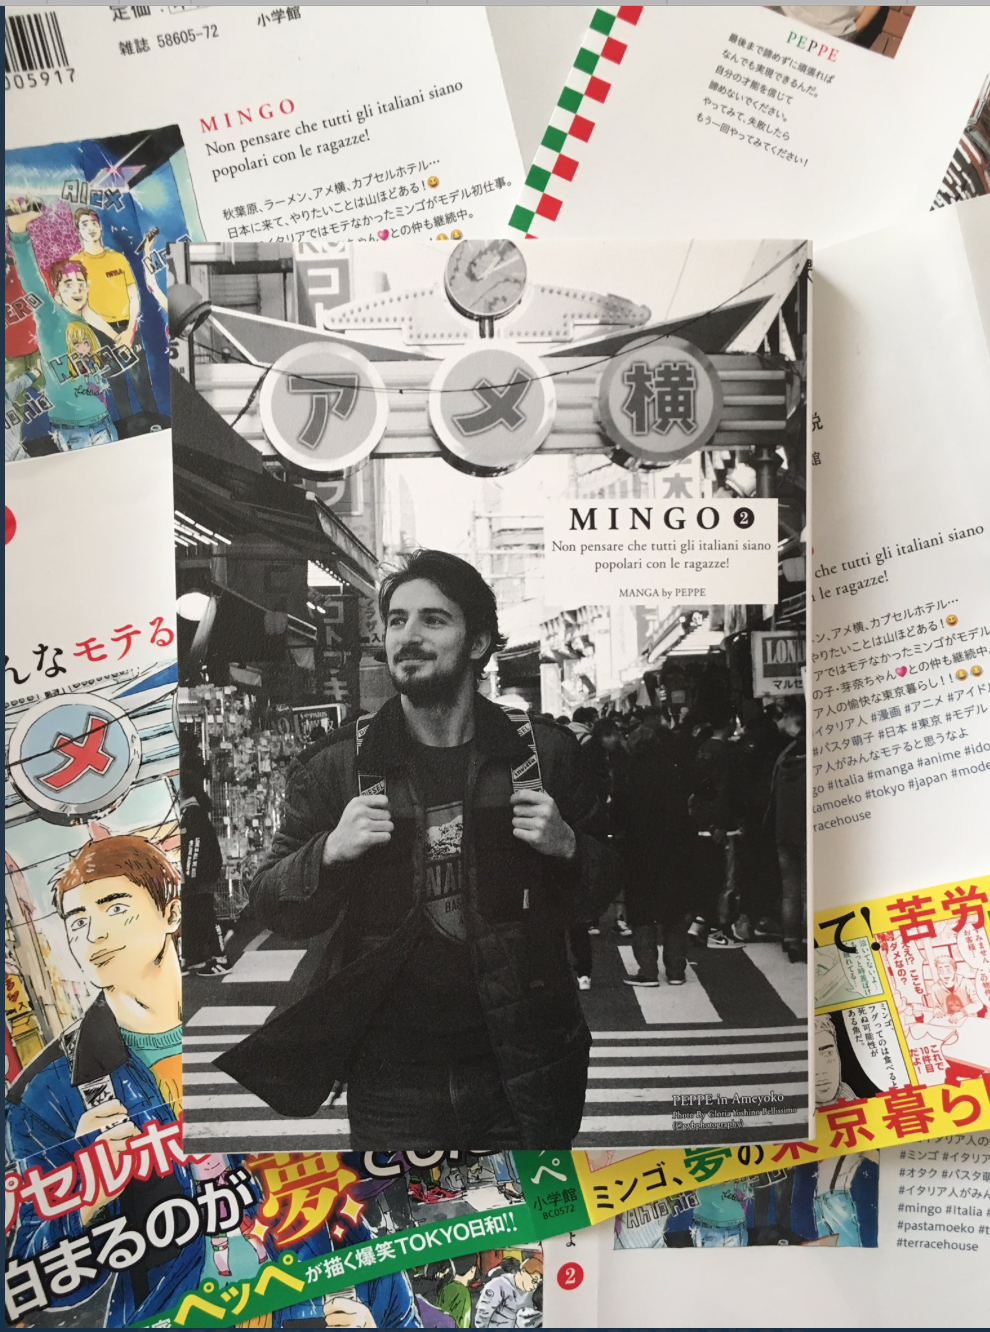 定価
雑誌 58605-72
小学館
005917
MINGO
Non pensare che tutti gli italiani siano
popolari con le ragazze!
秋葉原、ラーメン、アメ横、カプセルホテル…
日本に来て、やりたいことは山ほどある!😄
イタリアではモテなかったミンゴがモデル初仕事。
との仲も継続中。
PEPPE
最後まで諦めずに頑張れば
なんでも実現できるんだ。
自分の才能を信じて
諦めないでください。
やってみて、失敗したら
もう一回やってみてください!
Alex
Mingo
アメ横
MINGO 2
Non pensare che tutti gli italiani siano
popolari con le ragazze!
MANGA by PEPPE
LOND
マルセ
DIESEL
PEPPE in Ameyoko
Photo By Gloria Yoshino Bellissimo
んなモテる
メ
che tutti gli italiani siano
le ragazze!
ン、アメ横、カプセルホテル…
やりたいことは山ほどある!😄
アではモテなかったミンゴがモデル
の子・芽奈ちゃん💗との仲も継続中
ア人の愉快な東京暮らし!!
イタリア人 #漫画 #アニメ #アイド
#パスタ萌子 #日本 #東京 #モデル
ア人がみんなモテると思うなよ
go #Italia #manga #anime #ido
tamoeko #tokyo #japan #mode
rracehouse
て! 苦労
ミンゴ、
フグってのは食べると
死ぬ可能性が
ある魚だ。
これで
10件目
だよ!
ミンゴ、夢の東京暮ら
プセルホ
泊まるのが夢
ペッペが描く爆笑TOKYO日和!!
ペ
小学館
BC0572
よ
2
イタリア人の
#ミンゴ #イタリア
#オタク #パスタ萌
#イタリア人がみん
#mingo #Italia #
#pastamoeko #t
#terracehouse